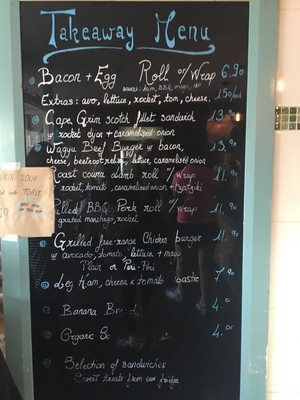 Takeaway Menu
Bacon + Egg Roll or/Wrap 6.90
sauces: tom, BBQ, mayo,
Extras: avo, lettuce, rocket, tom, cheese. 1.50/each
Cape Grim scotch fillet sandwich 13.90
w rocket dijon + caramelized onion
Wagyu Beef Burger w bacon, 13.90
cheese, beetroot relish, lettuce, caramelised onion
Roast lamb roll /wrap 11.90
w rocket, tomato, caramelised onion + tzatziki
Pulled BBQ Pork roll /wrap 11.90
grated manchego, rocket
Grilled free-range Chicken burger 11.90
w avocado, tomato, lettuce + mayo
Plain or Peri-Peri
Leg Ham, cheese & tomato toastie 7.90
Banana 4.00
Organic 4.00
Selection of sandwiches
Sweet treats from our fridge
SOUP
with TOAST